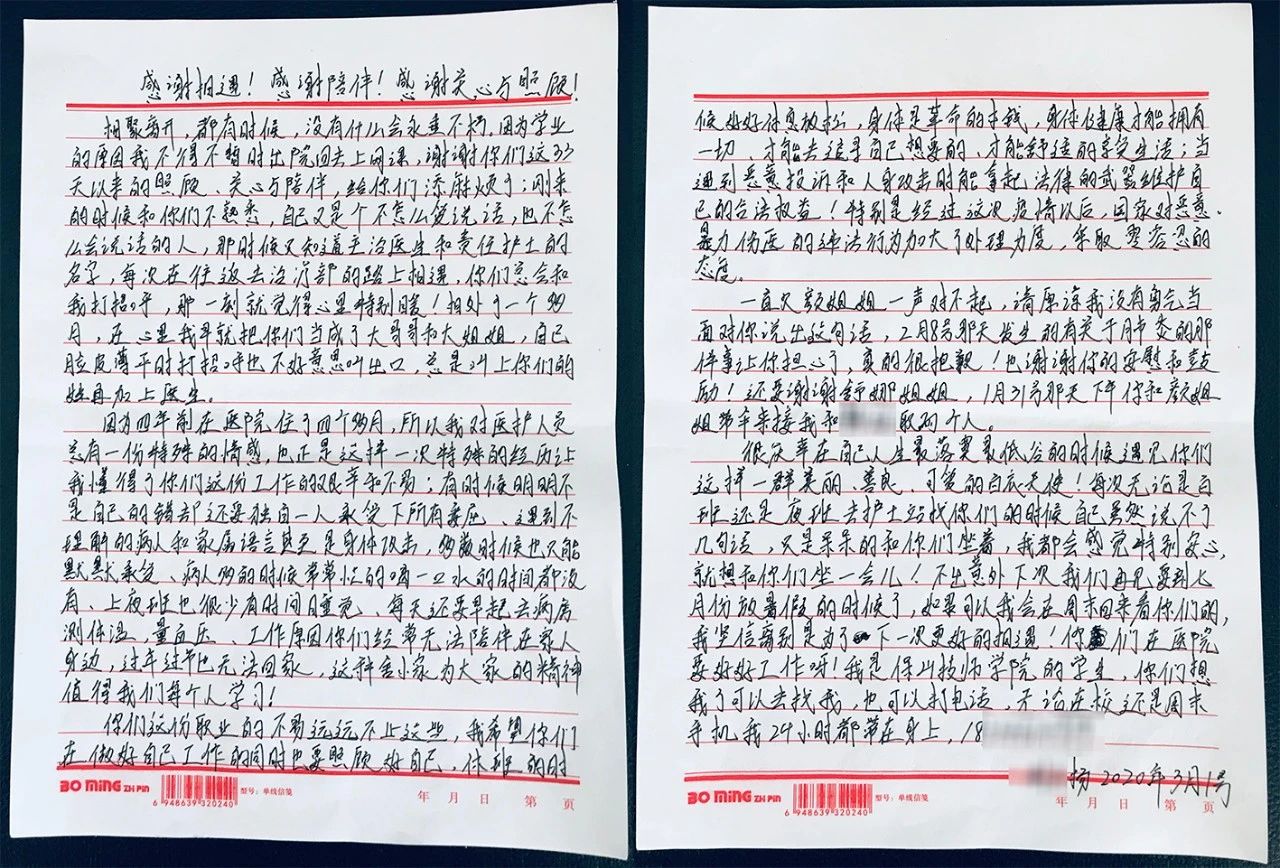 感谢相遇！感谢陪伴！感谢关心与照顾！
相聚离开，都有时候，没有什么会永垂不朽，因为学业
的原因我不得不暂时出院回去上网课，谢谢你们这33
天以来的照顾、关心与陪伴，给你们添麻烦了；刚来
的时候和你们不熟悉，自己又是个不怎么爱说话，也不怎
么会说话的人，那时候只知道主治医生和责任护士的
名字，每次在往返去治疗部的路上相遇，你们总会和
我打招呼，那一刻就觉得心里特别暖！相处了一个多
月，在心里我早就把你们当成了大哥哥和大姐姐，自己
脸皮薄平时打招呼也不好意思叫出口，总是叫上你们的
姓再加上医生。
因为四年前在医院住了四个多月，所以我对医护人员
总有一份特殊的情感，也正是这样一次特殊的经历让
我懂得了你们这份工作的艰辛和不易；有时候明明不
是自己的错却还要独自一人承受下所有委屈、遇到不
理解的病人和家属语言甚至是身体攻击，多数时候也只能
默默承受、病人多的时候常常忙的喝一口水的时间都没
有、上夜班也很少有时间睡觉、每天还要早起去病房
测体温，量血压、工作原因你们经常无法陪伴在家人
身边，过年过节也无法回家，这种舍小家为大家的精神
值得我们每个人学习！
你们这份职业的不易远远不止这些，我希望你们
在做好自己工作的同时也要照顾好自己，休班的时
BO MING ZHI PIN
6 948639 320240
型号：单线信笺
年 月 日 第 页
候好好休息放松，身体是革命的本钱，身体健康才能拥有
一切、才能去追寻自己想要的、才能舒适的享受生活；当
遇到恶意投诉和人身攻击时能拿起法律的武器维护自
己的合法权益！特别是经过这次疫情以后，国家对恶意、
暴力伤医的违法行为加大了处理力度，采取零容忍的
态度。
一直欠颜姐姐一声对不起，请原谅我没有勇气当
面对你说出这句话，2月8号那天发生的有关于月市委的那
件事让你担心了，真的很抱歉！也谢谢你的安慰和鼓
励！还要谢谢舒娜姐姐，1月31号那天下午你和颜姐
姐带伞来接我和
取药个人。
很庆幸在自己人生最落寞最低谷的时候遇见你们
这样一群美丽、善良、可爱的白衣天使！每次无论是白
班还是夜班去护士站找你们的时候自己虽然说不了
几句话，只是呆呆的和你们坐着，我都会感觉特别安心，
就想和你们坐一会儿！不出意外下次我们再见要到七
月份放暑假的时候了，如果可以我会在周末回来看你们的，
我坚信离别是为了下一次更好的相遇！你们在医院
要好好工作呀！我是保山技师学院的学生，你们想
我了可以去找我，也可以打电话，无论在校还是周末
手机我24小时都带在身上，18
扬 2020年3月1号
BO MING ZHI PIN
6 948639 320240
型号：单线信笺
年 月 日 第 页